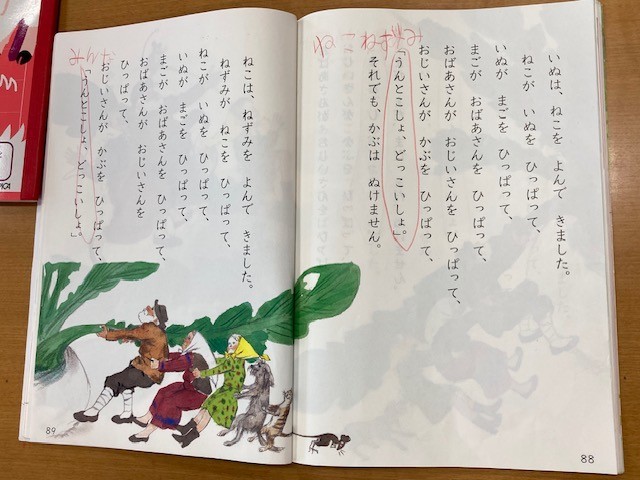 いぬは、ねこを よんで きました。
ねこが いぬを ひっぱって、
いぬが まごを ひっぱって、
まごが おばあさんを ひっぱって、
おばあさんが おじいさんを ひっぱって、
おじいさんが かぶを ひっぱって、
「うんとこしょ、どっこいしょ。」
それでも、かぶは ぬけません。
ねこ ねずみ
88
ねこは、ねずみを よんで きました。
ねずみが ねこを ひっぱって、
ねこが いぬを ひっぱって、
いぬが まごを ひっぱって、
まごが おばあさんを ひっぱって、
おばあさんが おじいさんを
ひっぱって、
おじいさんが かぶを ひっぱって、
「うんとこしょ、どっこいしょ。」
89